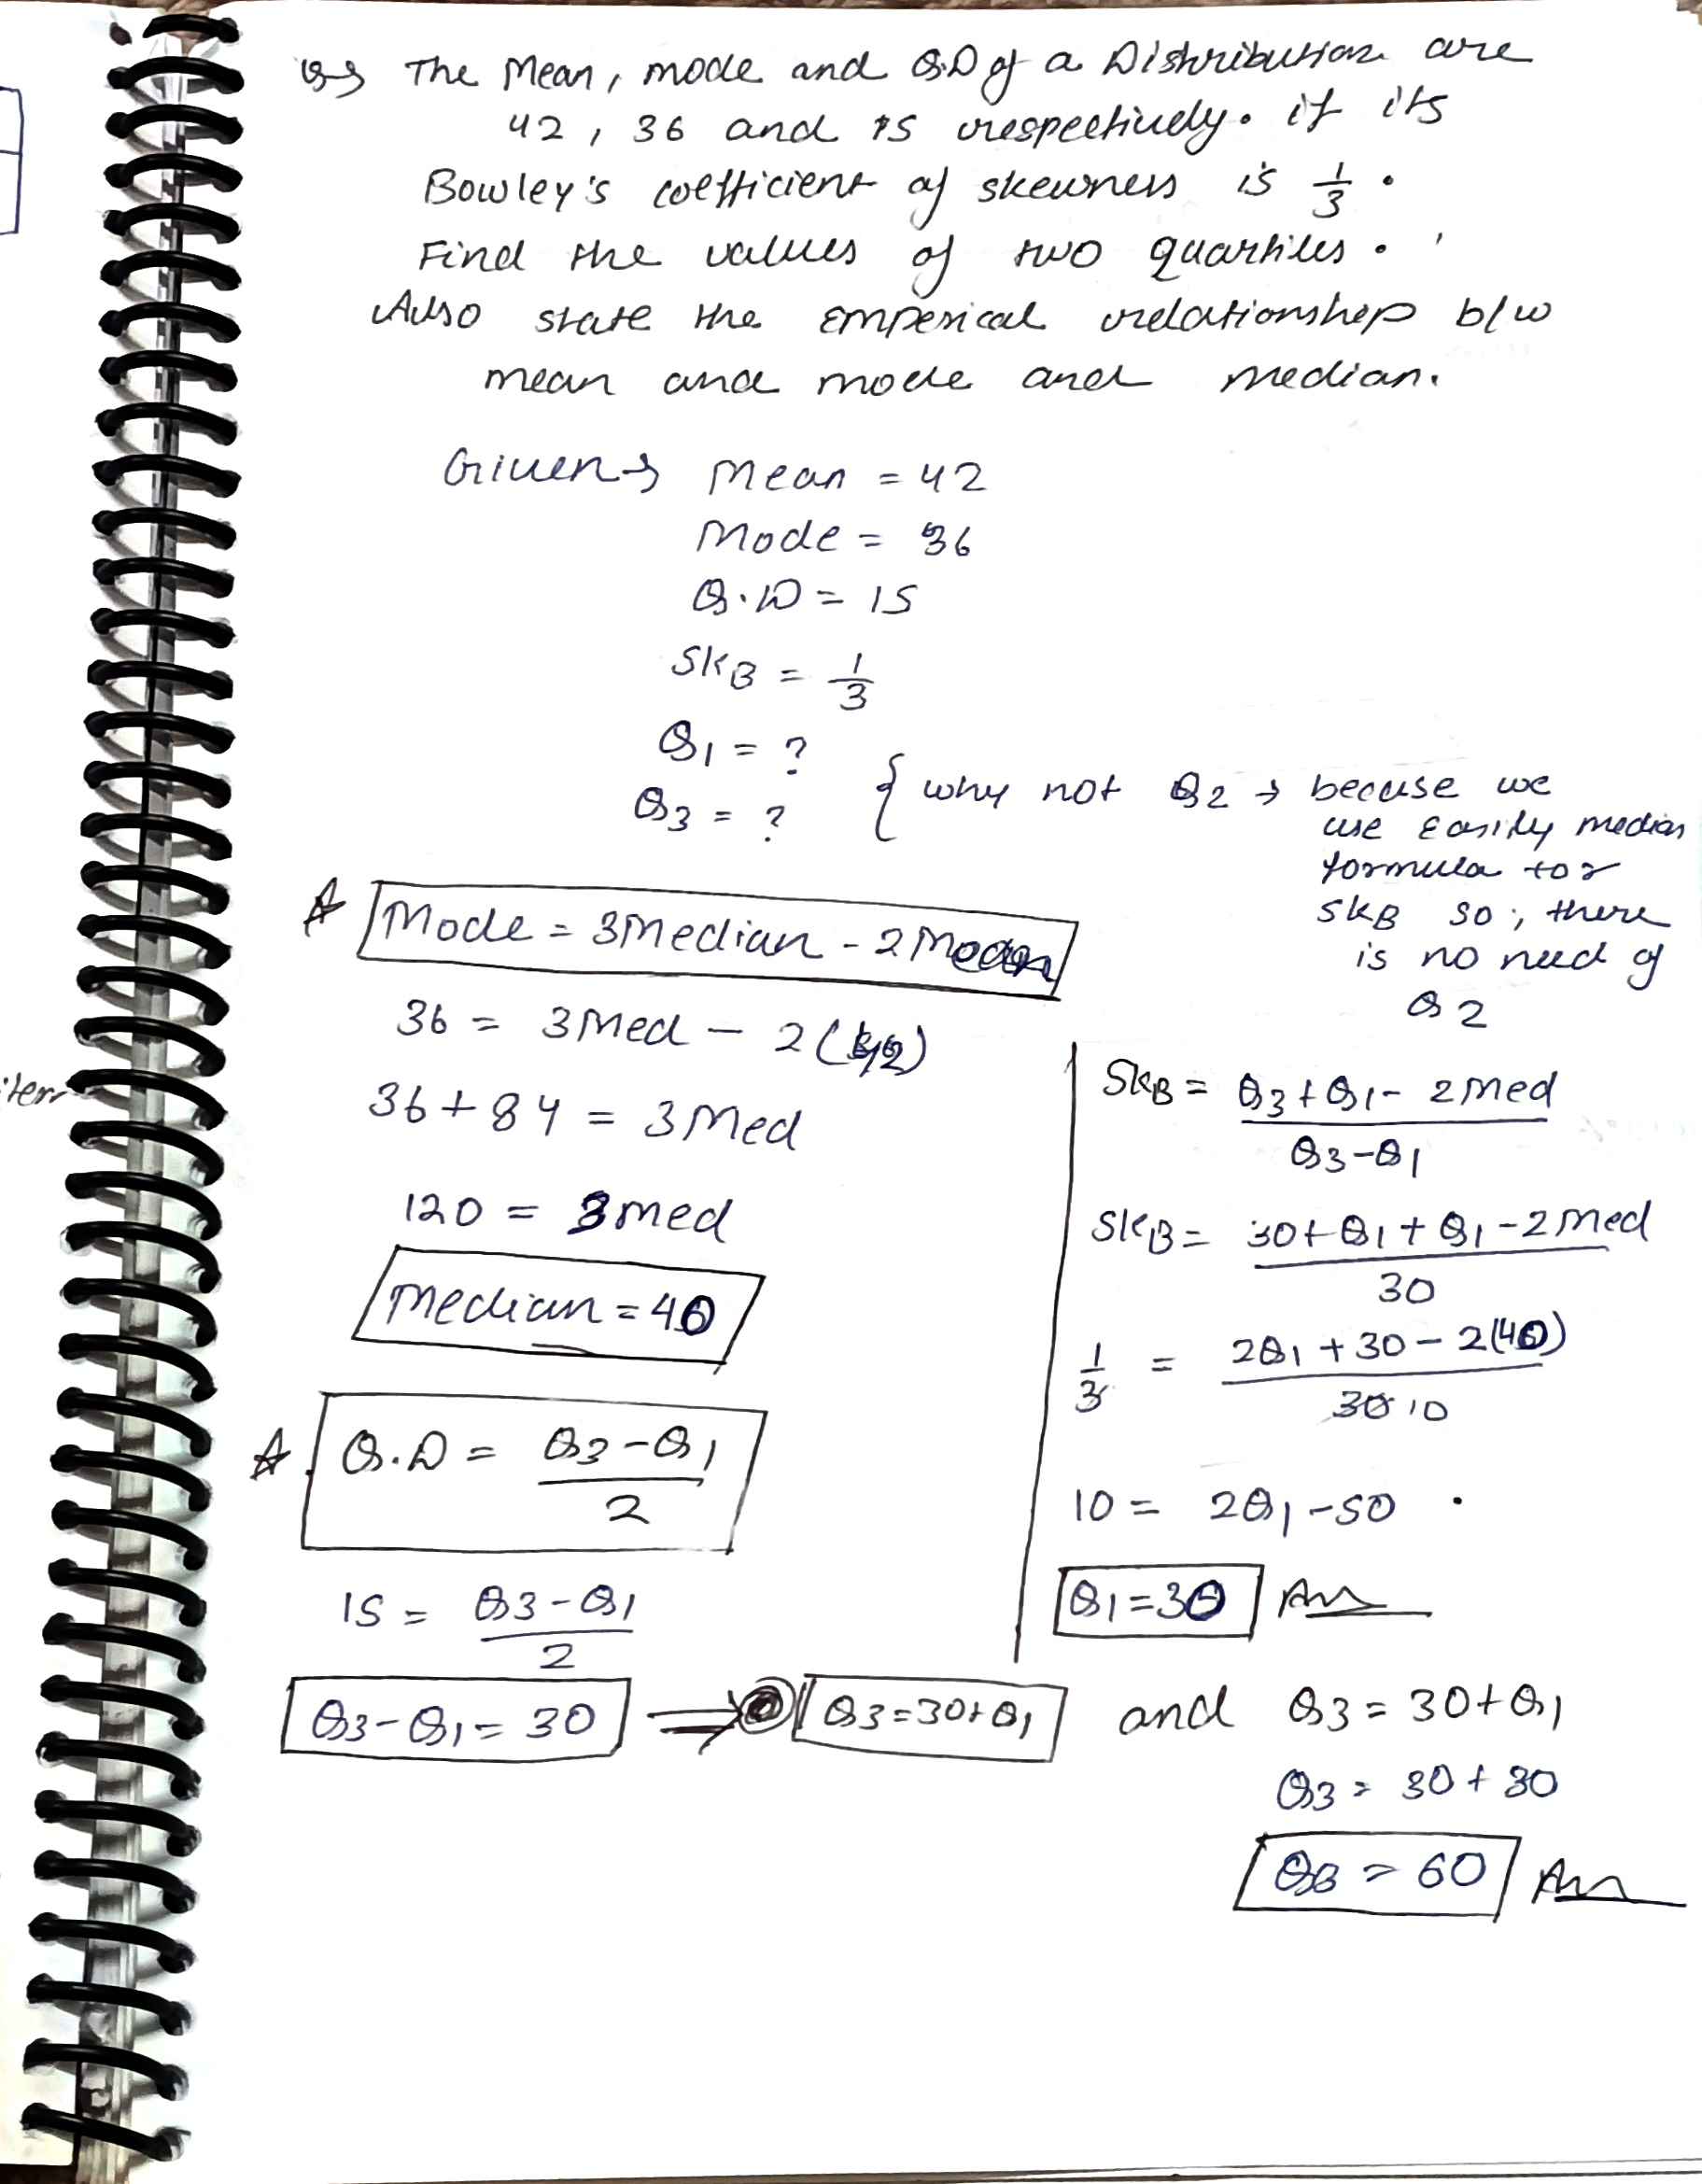 Q→ The Mean, mode and Q.D of a Distribution are
42, 36 and 15 respectively. if its
Bowley's coefficient of skewness is 1/3.
Find the values of two quartiles.
Also state the emperical relationship b/w
mean and mode and median.
Given→ Mean = 42
Mode = 36
Q.D = 15
SKB = 1/3
Q1 = ?
Q3 = ?
{ why not Q2 → becuse we
use easily median
formula for
SKB so, there
is no need of
Q2
☆ Mode = 3Median - 2Mean
36 = 3Med - 2(42)
36 + 84 = 3Med
120 = 3med
Median = 40
☆ Q.D = (Q3-Q1)/2
15 = (Q3-Q1)/2
Q3-Q1 = 30 ⇒ Q3=30+Q1
iterr
SKB = (Q3+Q1-2Med)/(Q3-Q1)
SKB = (30+Q1+Q1-2Med)/30
1/3 = (2Q1+30-2(40))/30 10
10 = 2Q1-50
Q1=30 Ans
and Q3 = 30+Q1
Q3 = 30+30
Q3 = 60 Ans